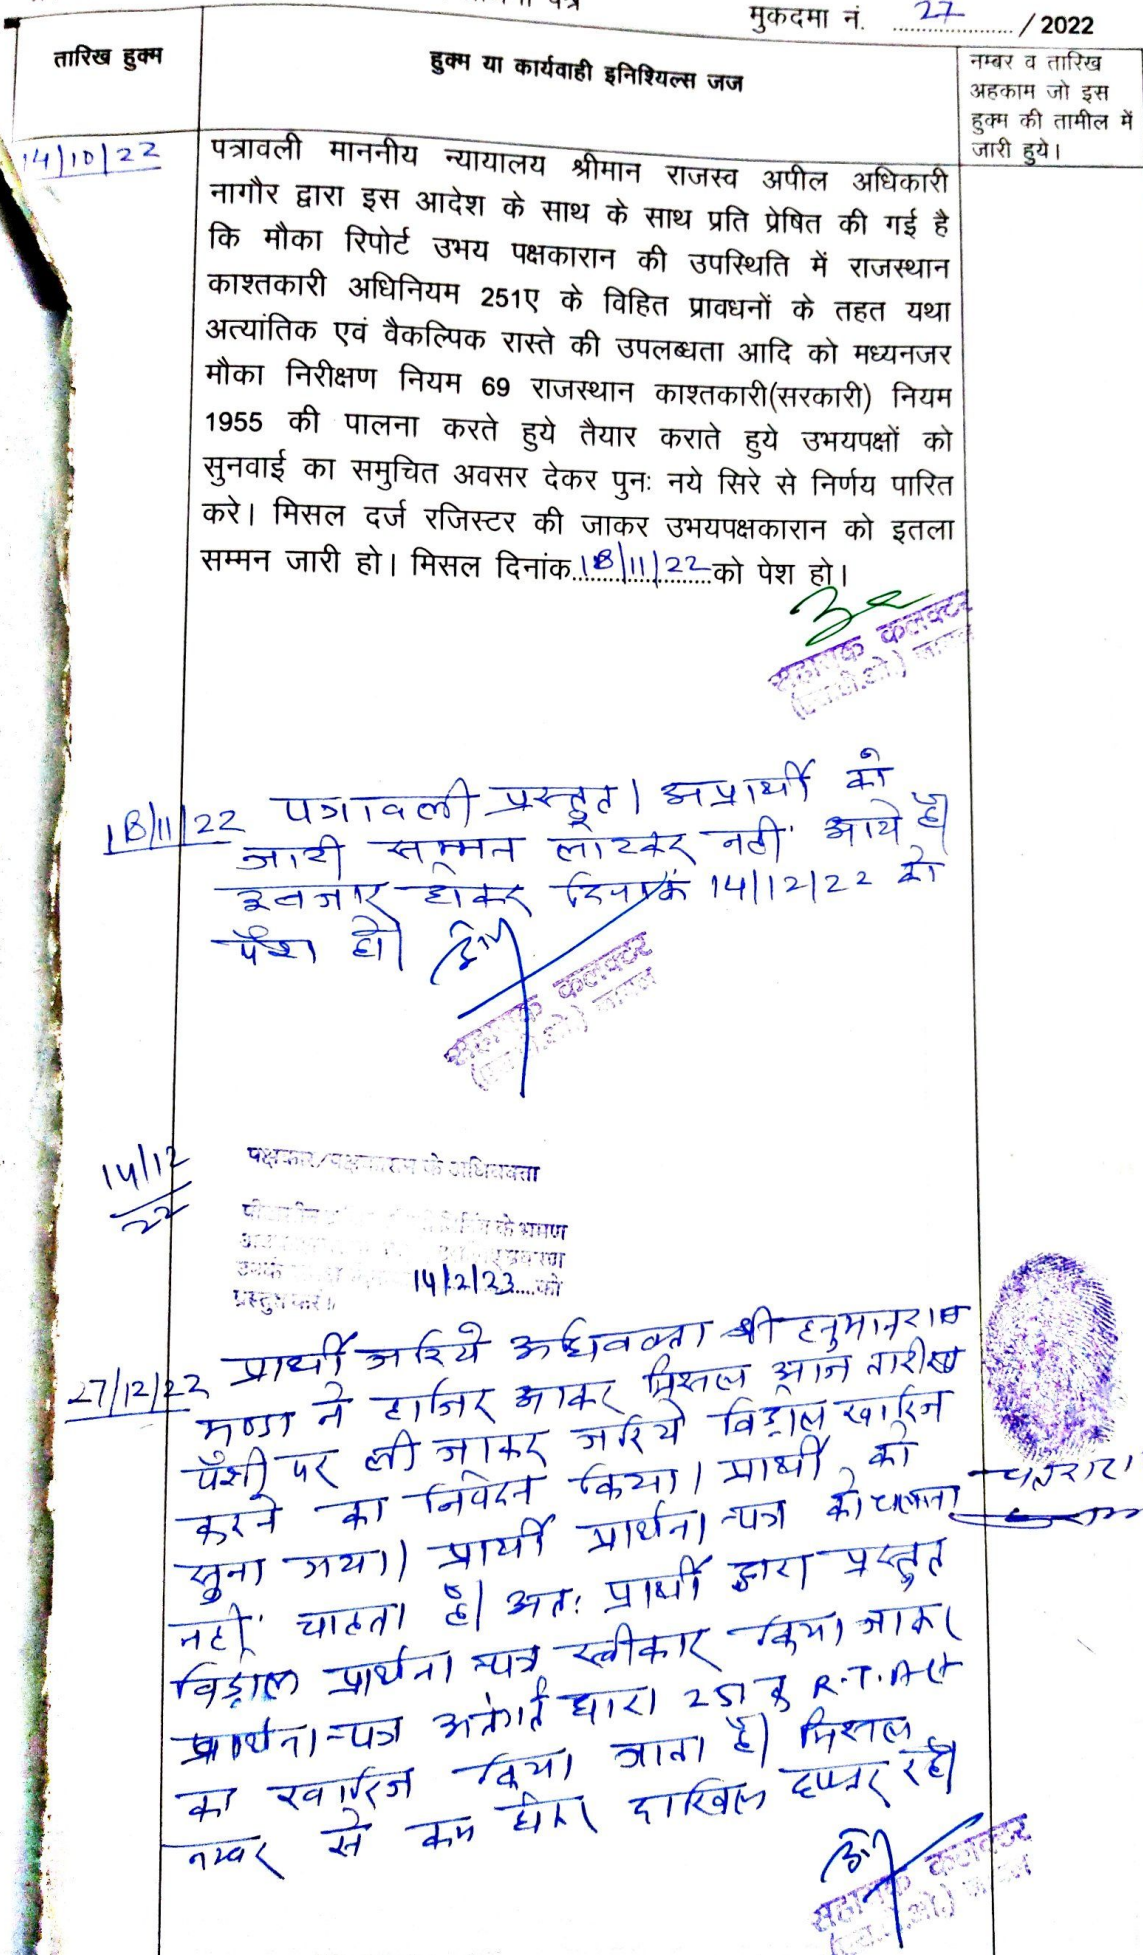 मुकदमा नं. 27 / 2022
तारिख हुक्म
हुक्म या कार्यवाही इनिश्यिल्स जज
नम्बर व तारिख
अहकाम जो इस
हुक्म की तामील में
जारी हुये।
14/10/22
पत्रावली माननीय न्यायालय श्रीमान राजस्व अपील अधिकारी
नागौर द्वारा इस आदेश के साथ के साथ प्रति प्रेषित की गई है
कि मौका रिपोर्ट उभय पक्षकारान की उपस्थिति में राजस्थान
काश्तकारी अधिनियम 251ए के विहित प्रावधनों के तहत यथा
अत्यांतिक एवं वैकल्पिक रास्ते की उपलब्धता आदि को मध्यनजर
मौका निरीक्षण नियम 69 राजस्थान काश्तकारी(सरकारी) नियम
1955 की पालना करते हुये तैयार कराते हुये उभयपक्षों को
सुनवाई का समुचित अवसर देकर पुनः नये सिरे से निर्णय पारित
करे। मिसल दर्ज रजिस्टर की जाकर उभयपक्षकारान को इतला
सम्मन जारी हो। मिसल दिनांक 18/11/22 को पेश हो।
सहायक कलक्टर
18/11/22 पत्रावली प्रस्तुत। अप्रार्थी को
जारी सम्मन लौटकर नही आये है।
इन्तजार होकर दिनांक 14/12/22 को
पेश हो।
सहायक कलक्टर
14/12/22
पक्षकार/पक्षकारान के अधिवक्ता
के भ्रमण
14/2/23 को
प्रस्तुत करें।
27/12/22 प्रार्थी जरिये अधिवक्ता श्री हनुमानराम
ने हाजिर आकर मिसल आज तारीख
पेशी पर ली जाकर जरिये विड्राल खारिज
करने का निवेदन किया। प्रार्थी को
सुना गया। प्रार्थी प्रार्थना-पत्र को चलाना
नही चाहता है। अतः प्रार्थी द्वारा प्रस्तुत
विड्राल प्रार्थना-पत्र स्वीकार किया जाकर
प्रार्थना-पत्र अन्तर्गत धारा 251 R.T.Act
का खारिज किया जाता है। मिसल
नम्बर से कम होकर दाखिल दफ्तर रहे।
सहायक कलक्टर